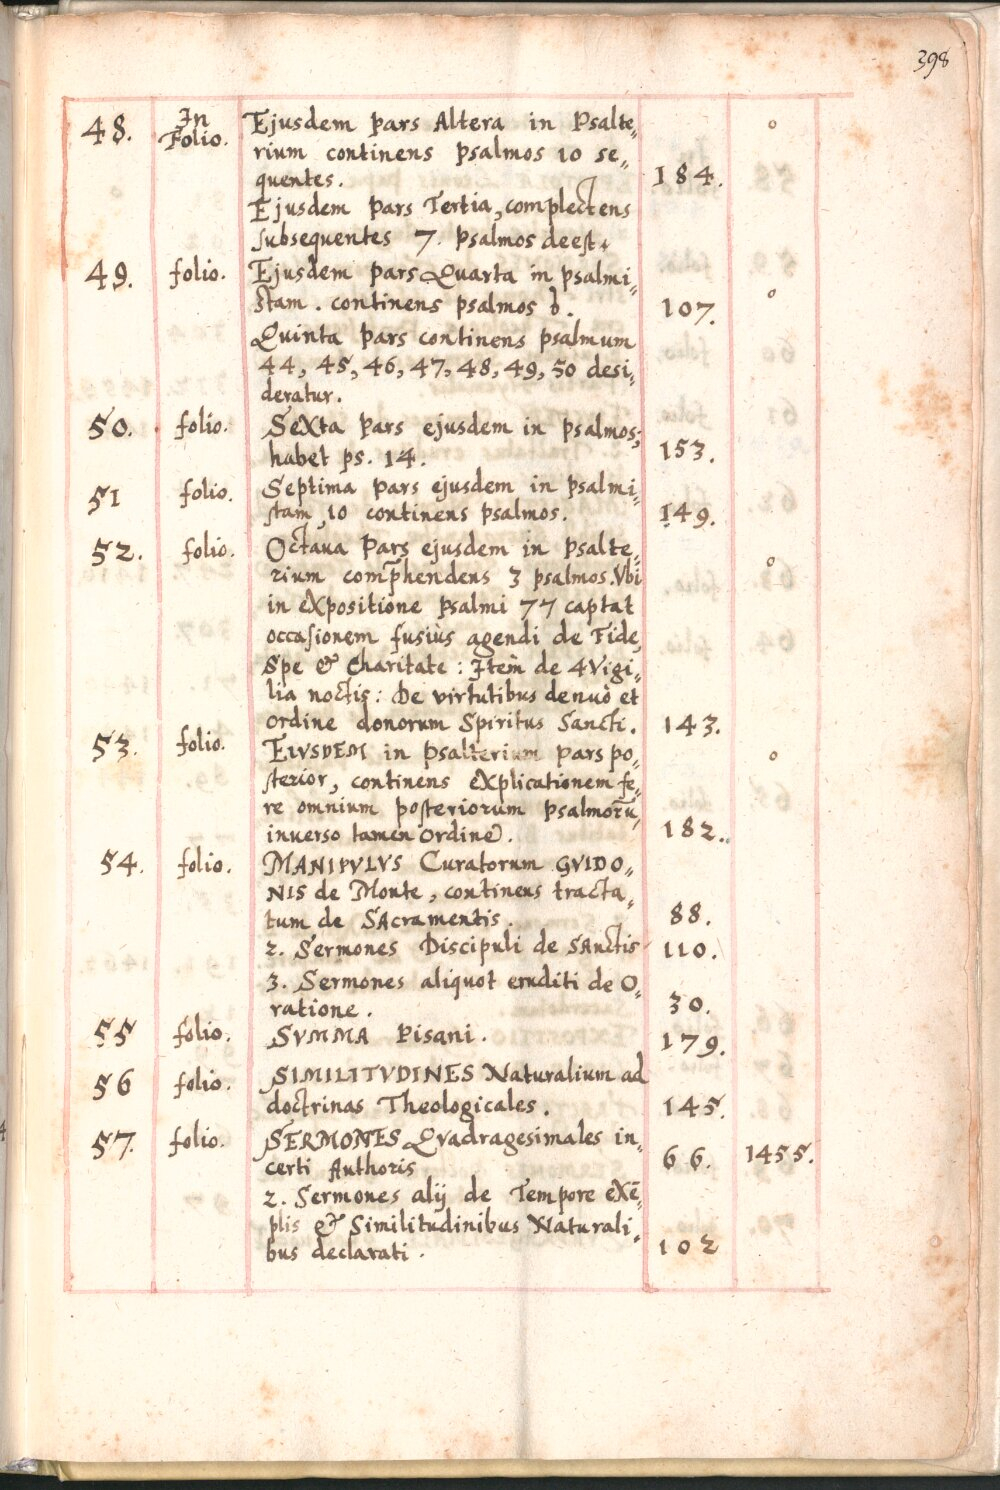 398
48. In Folio. Ejusdem pars Altera in Psalte„ °
rium continens psalmos 10 se„
quentes. 184.
Ejusdem pars Tertia, complectens
subsequentes 7. psalmos deest.
49. folio. Ejusdem pars Quarta in psalmi„
stam. continens psalmos 107. °
Quinta pars continens psalmum
44, 45, 46, 47, 48, 49, 50 desi„
deratur.
50. folio. Sexta pars ejusdem in psalmos;
habet ps. 14. 153.
51 folio. Septima pars ejusdem in psalmi„
stam, 10 continens psalmos. 149.
52. folio. Octaua pars ejusdem in psalte„
rium comp̄hendens 3 psalmos. Vbi °
in expositione psalmi 77 captat
occasionem fusiùs agendi de Fide,
Spe & Charitate: Itèm de 4 Vigi„
lia noctis: De virtutibus denuò et
ordine donorum Spiritus Sancti. 143.
53. folio. EIVSDEM in psalterium pars po„ °
sterior, continens explicationem fe„
re omnium posteriorum psalmorū,
inverso tamen ordine. 182..
54. folio. MANIPVLVS Curatorum GVIDO„
NIS de Monte, continens tracta„
tum de SAcramentis. 88.
2. Sermones Discipuli de SAnctis 110.
3. Sermones aliquot eruditi de O„
ratione. 30.
55 folio. SVMMA Pisani. 179.
56 folio. SIMILITVDINES Naturalium ad
doctrinas Theologicales. 145.
57. folio. SERMONES Qvadragesimales in„
certi Authoris 66. 1455.
2. Sermones alij de Tempore exē„
plis & Similitudinibus Naturali„
bus declarati. 102